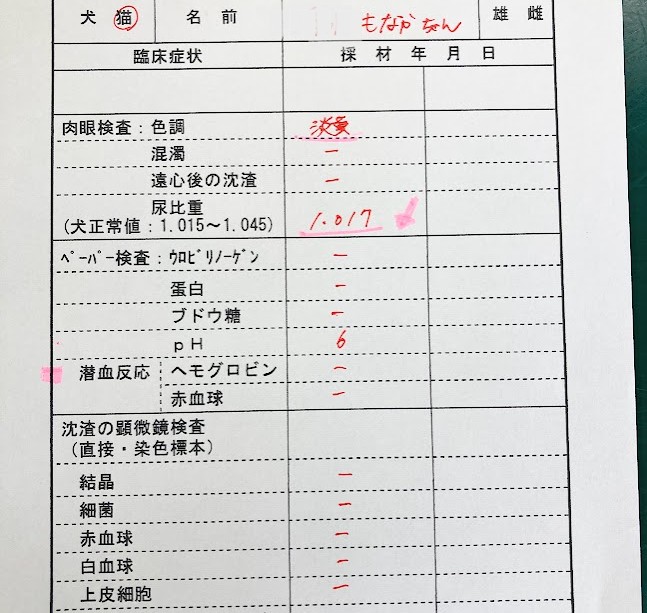 犬 猫 名 前 もなかちゃん 雄 雌
臨床症状 採 材 年 月 日
肉眼検査：色調 淡黄
混濁 －
遠心後の沈渣 －
尿比重
(犬正常値：1.015～1.045) 1.017
ﾍﾟｰﾊﾟｰ検査：ｳﾛﾋﾞﾘﾉｰｹﾞﾝ －
蛋白 －
ブドウ糖 －
pH 6
潜血反応 ヘモグロビン －
赤血球 －
沈渣の顕微鏡検査
(直接・染色標本)
結晶 －
細菌 －
赤血球 －
白血球 －
上皮細胞 －